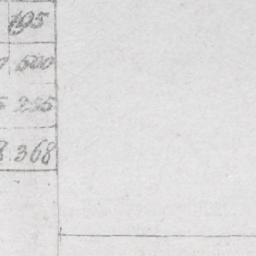 195
0 500
5 225
8.368